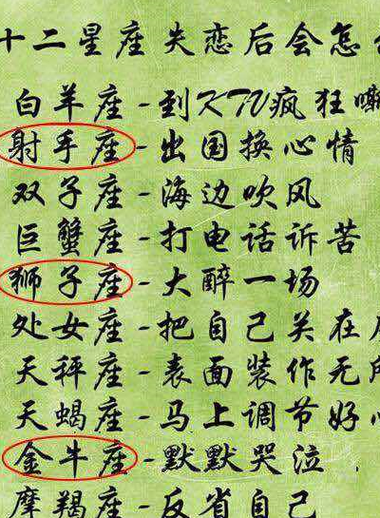 十二星座失恋后会怎
白羊座-到KTV疯狂嘶
射手座-出国换心情
双子座-海边吹风
巨蟹座-打电话诉苦
狮子座-大醉一场
处女座-把自己关在
天秤座-表面装作无所
天蝎座-马上调节好心
金牛座-默默哭泣
摩羯座-反省自己